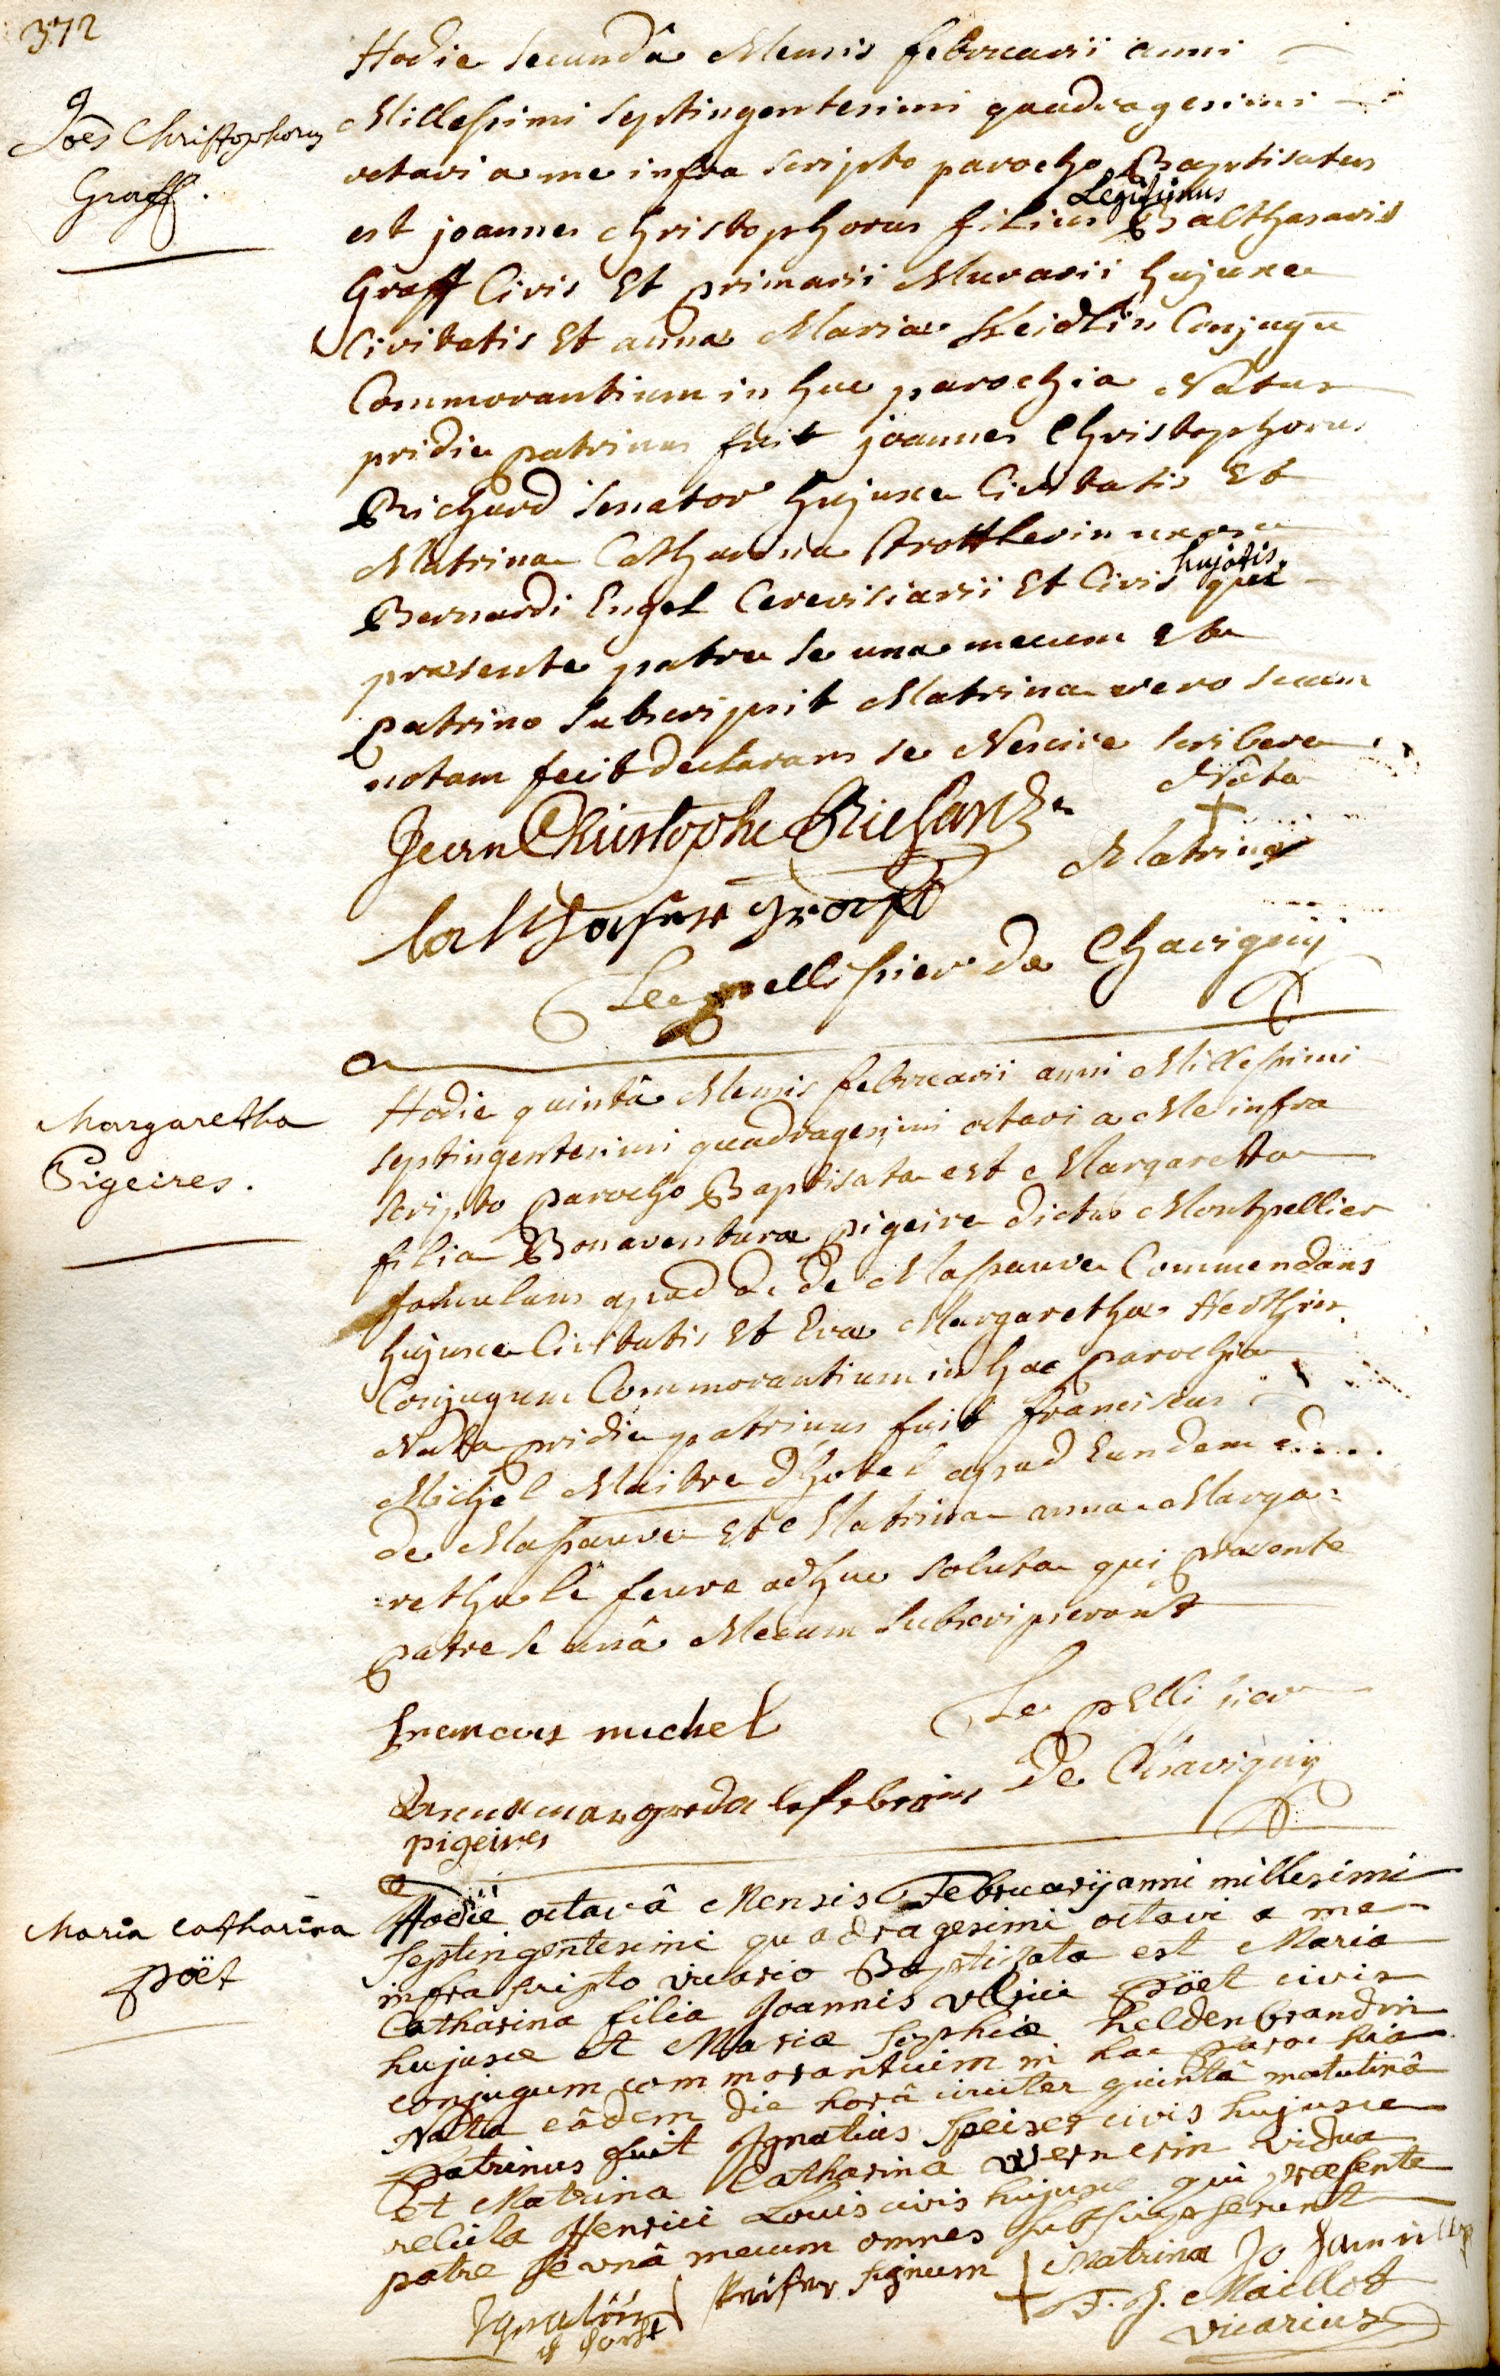 372
Joes Christophorus
Graff.
Hodie secundâ Mensis februarii anni
Millesimi septingentesimi quadragesimi
octavi a me infra scripto parocho Baptisatus
Legitimus
est joannes christophorus filius Balthasaris
Graff Civis Et primarii Murarii hujusce
Civitatis Et anna Maria Heidlin Conjugu
Commorantium in hac parochia Natus
pridie patrinus fuit joannes Christophorus
Richard senator hujusce Civitatis Et
Matrina Catharina Trottlerin uxor
hujatis.
Bernardi Engel Cerevisiarii Et Civis qui
præsente patre se una mecum Et
patrino subscripsit Matrina vero suam
notam fecit declarans se Nescire scribere
Nota
Jean Christophe Richard
Matrinæ
balthasar graff
Lepellissier De Chavigny
Margaretha
Pigeires.
Hodie quintâ Mensis februarii anni Millesimi
septingentesimi quadragesimi octavi a Me infra
scripto parocho Baptisata est Margaretta
filia Bonaventuræ pigeire dictus Montpellier
famulans apud D. De Massauve Commendans
hujusce Civitatis Et Eva Margaretha Herthin
Conjugum Commorantium in hac parochia
Nata pridie patrinus fuit franciscus
Michel Maitre d'hotel apud Eundem
de Massauve Et Matrina anna Marga=
=retha le feure adhuc soluta qui præsente
patre se unâ Mecum subscripserunt
francois michel
Le pellissier
De Chavigny
anna margreda lefebrin
pigeires
Maria Catharina
Pöet
Hodie octavâ Mensis Februarij anni millesimi
septingentesimi quadragesimi octavi a me
infra scripto vicario Baptisata est Maria
Catharina filia Joannis Ulrici Pöet civis
hujusce et Mariæ Sophiæ heldenbrandin
conjugum commorantium in hac parochia
Nata eâdem die horâ circiter quintâ matutinâ
patrinus fuit Ignatius Speiser civis hujusce
Et Matrina Catharina Wernerin vidua
relicta Henrici Louis civis hujusce qui præsente
patre se unâ mecum omnes subscripserunt
Ignatius signum Matrinæ
F. J. Maillot
vicarius